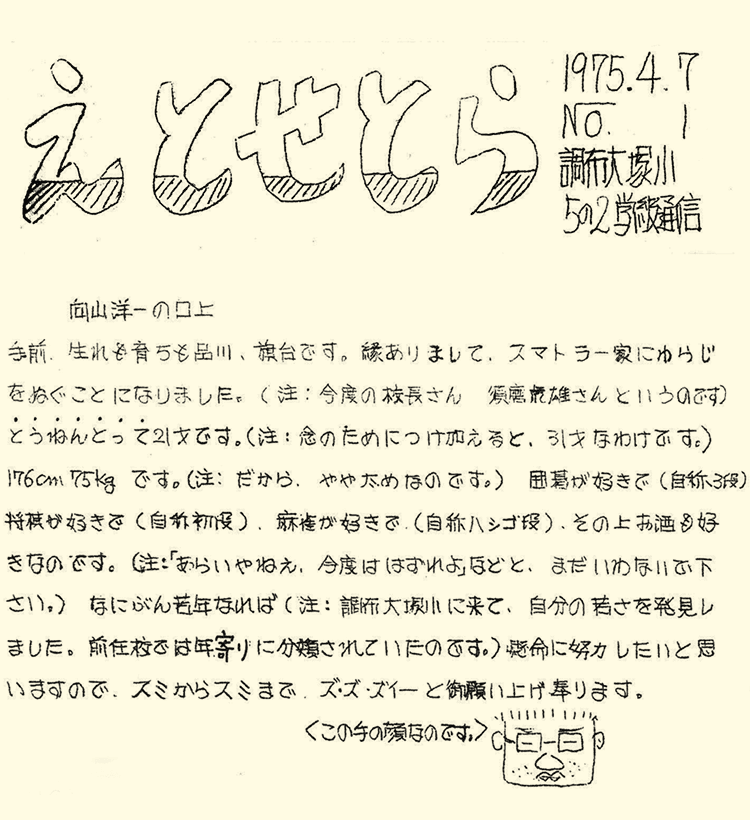 えとせとら
1975.4.7
NO. 1
調布大塚小
5の2学級通信
向山洋一の口上
手前、生れも育ちも品川、旗台です。縁ありまして、スマトラ一家にわらじ
をぬぐことになりました。(注：今度の校長さん 須磨虎雄さんというのです)
とうねんとって21才です。(注：念のためにつけ加えると、31才なわけです。)
176cm 75kg です。(注：だから、やや太めなのです。) 囲碁が好きで(自称3段)
将棋が好きで(自称初段)、麻雀が好きで、(自称ハシゴ段)、その上お酒も好
きなのです。(注：「あらいやねえ、今度ははずれよ」などと、まだいわないで下
さい。) なにぶん若年なれば(注：調布大塚小に来て、自分の若さを発見し
ました。前任校では年寄りに分類されていたのです。)懸命に努力したいと思
いますので、スミからスミまで、ズ・ズ・ズイーと御願い上げ奉ります。
<この手の顔なのです。>